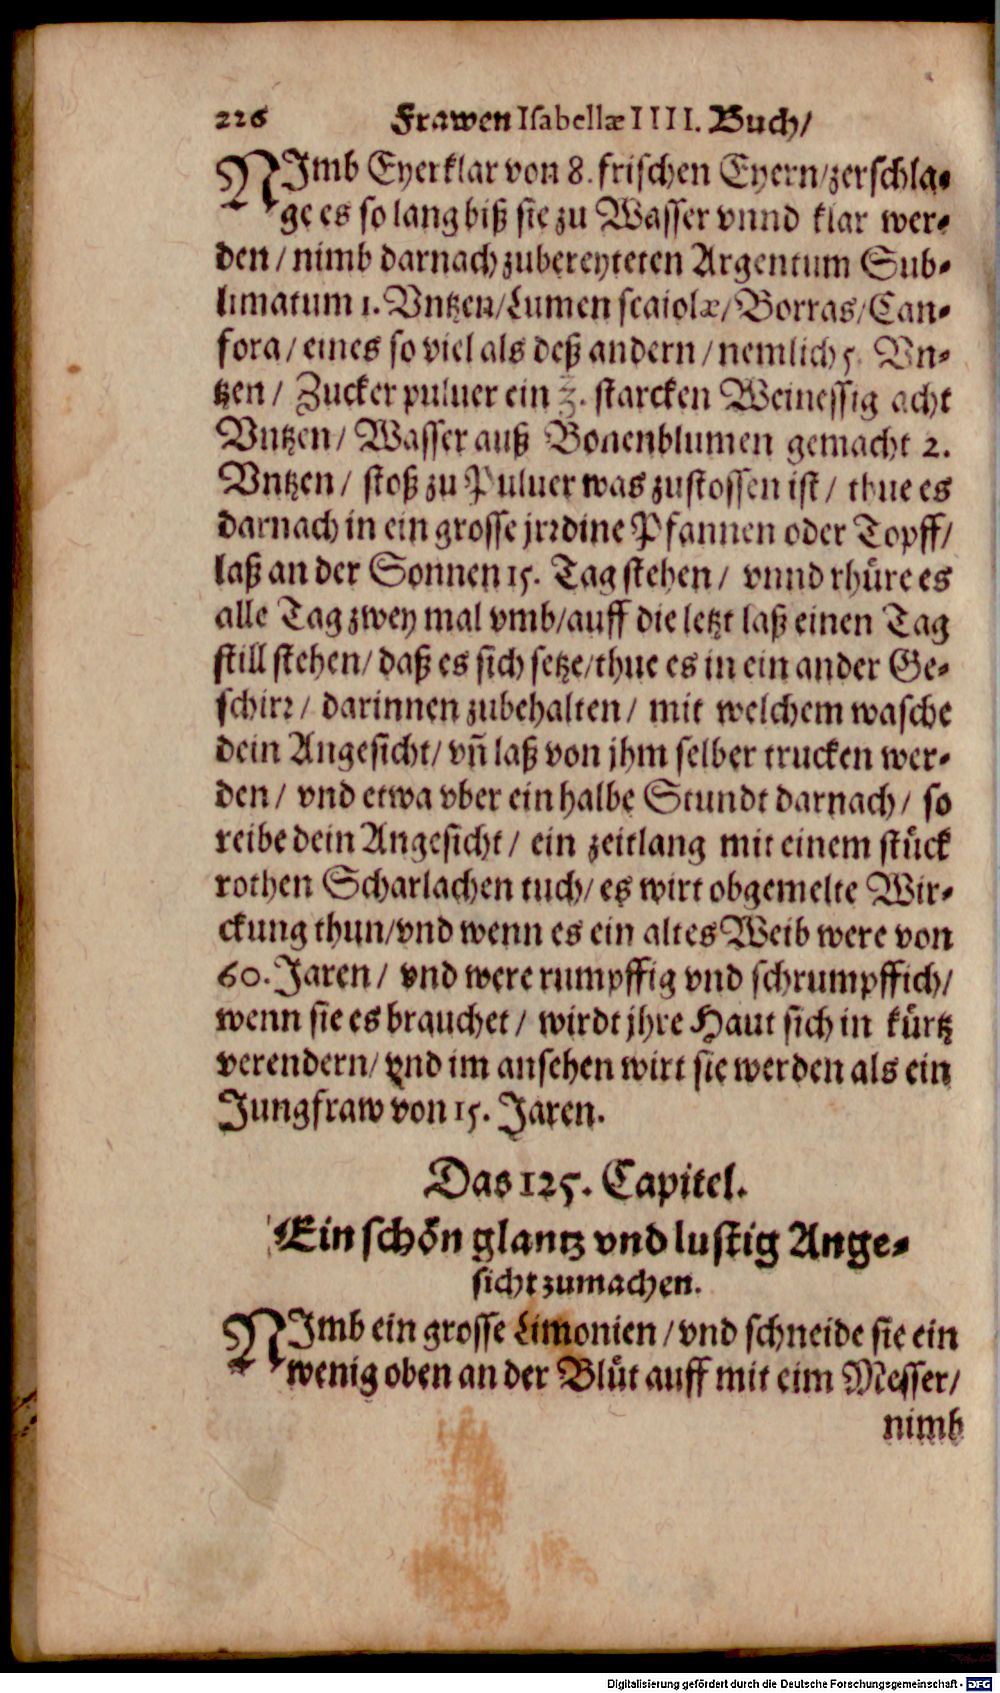 226 Frawen Isabellæ IIII. Buch/
NImb Eyerklar von 8. frischen Eyern/zerschla-
ge es so lang biß sie zu Wasser vnnd klar wer-
den/ nimb darnach zubereyteten Argentum Sub-
limatum 1. Vntzen/Lumen scaiolæ/Borras/Can-
fora/ eines so viel als deß andern/nemlich 5. Vn-
tzen/ Zucker puluer ein ℥. starcken Weinessig acht
Vntzen/ Wasser auß Bonenblumen gemacht 2.
Vntzen/ stoß zu Puluer was zustossen ist/ thue es
darnach in ein grosse jrꝛdine Pfannen oder Topff/
laß an der Sonnen 15. Tag stehen/ vnnd rhüre es
alle Tag zwey mal vmb/auff die letzt laß einen Tag
still stehen/ daß es sich setze/thue es in ein ander Ge-
schirꝛ/ darinnen zubehalten/ mit welchem wasche
dein Angesicht/ vñ laß von jhm selber trucken wer-
den/ vnd etwa vber ein halbe Stundt darnach/ so
reibe dein Angesicht/ ein zeitlang mit einem stück
rothen Scharlachen tuch/ es wirt obgemelte Wir-
ckung thun/vnd wenn es ein altes Weib were von
60. Jaren/ vnd were rumpffig vnd schrumpffich/
wenn sie es brauchet/ wirdt jhre Haut sich in kürtz
verendern/ vnd im ansehen wirt sie werden als ein
Jungfraw von 15. Jaren.
Das 125. Capitel.
Ein schön glantz vnd lustig Ange-
sicht zumachen.
NImb ein grosse Limonien/vnd schneide sie ein
wenig oben an der Blüt auff mit eim Messer/
nimb
Digitalisierung gefördert durch die Deutsche Forschungsgemeinschaft - DFG